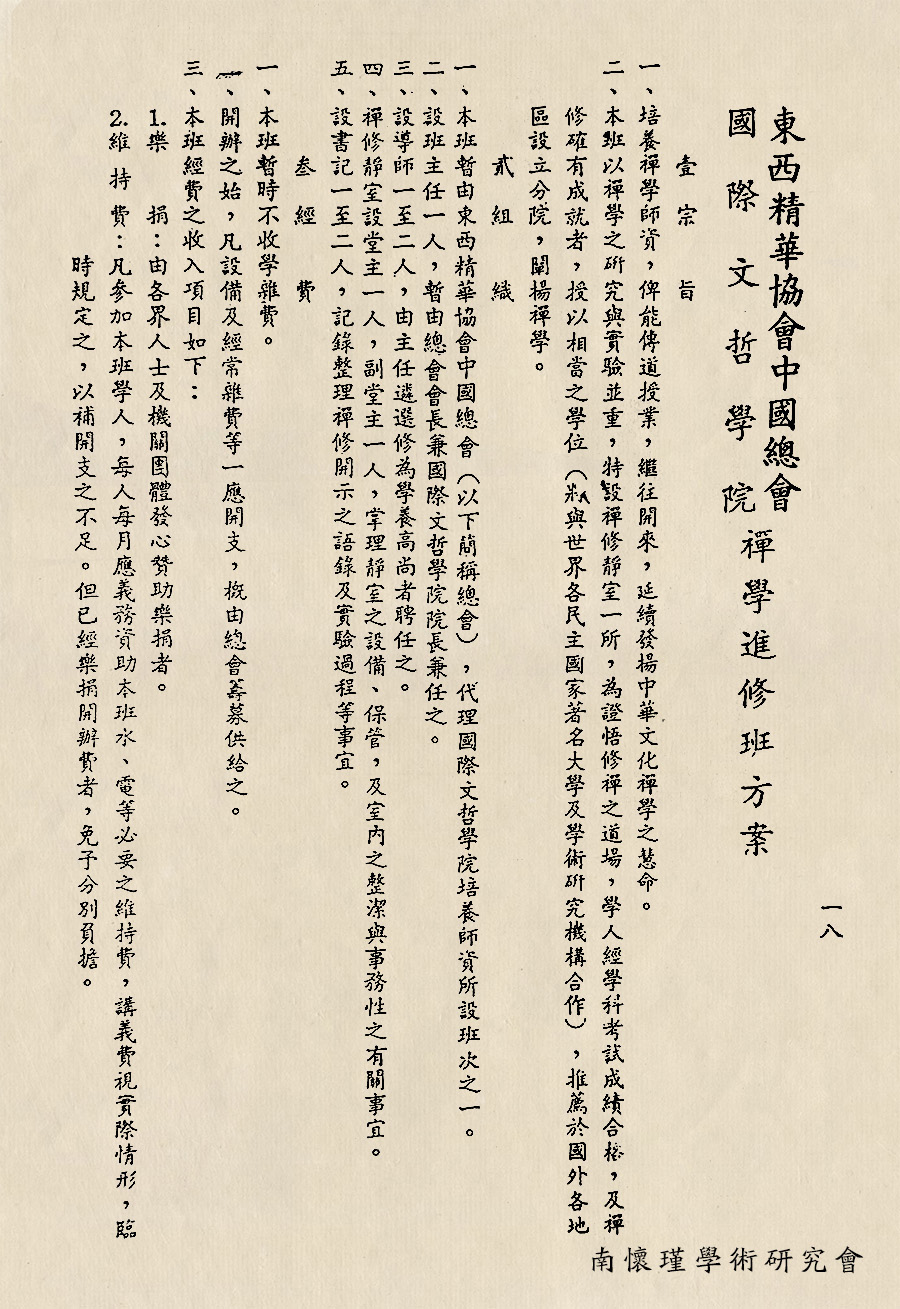 東西精華協會中國總會
國際文哲學院
禪學進修班方案
一八
壹宗旨
一、培養禪學師資，俾能傳道授業，繼往開來，延續發揚中華文化禪學之慧命。
二、本班以禪學之研究與實驗並重，特設禪修靜室一所，為證悟修禪之道場，學人經學科考試成績合格，及禪
修確有成就者，授以相當之學位（與世界各民主國家著名大學及學術研究機構合作），推薦於國外各地
區設立分院，闡揚禪學。
貳組織
一、本班暫由東西精華協會中國總會（以下簡稱總會），代理國際文哲學院培養師資所設班次之一。
二、設班主任一人，暫由總會會長兼國際文哲學院院長兼任之。
三、設導師一至二人，由主任遴選修為學養高尚者聘任之。
四、禪修靜室設堂主一人，副堂主一人，掌理靜室之設備、保管，及室內之整潔與事務性之有關事宜。
五、設書記一至二人，記錄整理禪修開示之語錄及實驗過程等事宜。
叁經費
一、本班暫時不收學雜費。
二、開辦之始，凡設備及經常雜費等一應開支，概由總會籌募供給之。
三、本班經費之收入項目如下：
1.樂捐：由各界人士及機關團體發心贊助樂捐者。
2.維持費：凡參加本班學人，每人每月應義務資助本班水、電等必要之維持費，講義費視實際情形，臨
時規定之，以補開支之不足。但已經樂捐開辦費者，免予分別負擔。
南懷瑾學術研究會